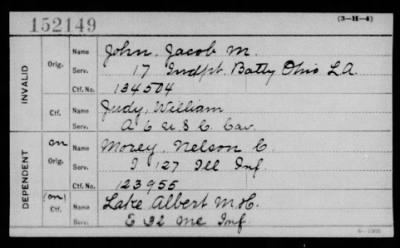 152149
(3-H-4)
INVALID
Orig.
Name John, Jacob M.
Serv. 17 Indpt. Batty Ohio L.A.
Ctf. No. 134504
Ctf.
Name Judy, William
Serv. A 6 U.S.C. Cav.
DEPENDENT
on
Orig.
Name Morey, Nelson C.
Serv. I 127 Ill Inf.
Ctf. No. 123955
(on)
Ctf.
Name Lake Albert M.H.
Serv. E 32 Me Inf